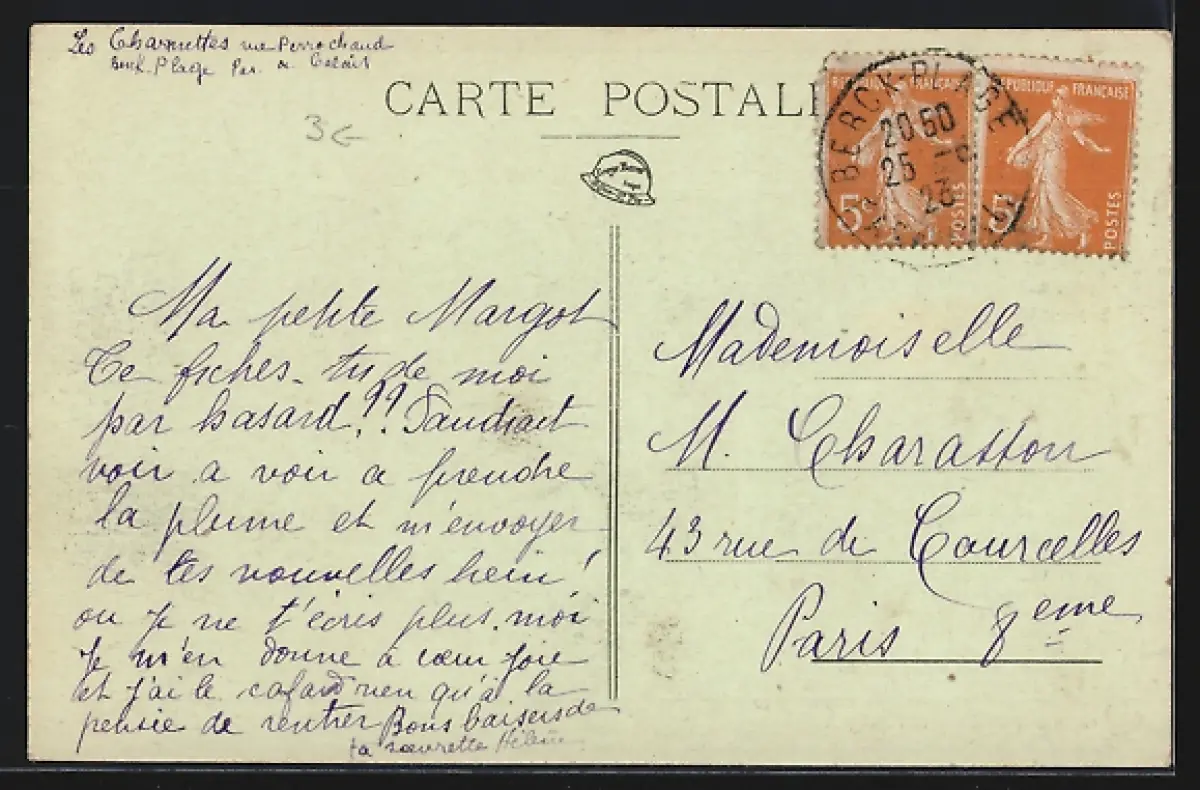 Les Charmettes rue Perrochaud
Berck-Plage Pas de Calais
CARTE POSTALE
3€
BERCK-PLAGE
20 60
25 -8
23
REPUBLIQUE FRANÇAISE
5c POSTES
REPUBLIQUE FRANÇAISE
5 POSTES
Ma petite Margot
Te fiches-tu de moi
par hasard?? Faudrait
voir a voir a prendre
la plume et m'envoyer
de tes nouvelles hein!
ou je ne t'écris plus. moi
Je m'en donne à cœur joie
et j'ai le cafard rien qu'à la
pensée de rentrer Bons baisers de
ta sœurette Hélène
Mademoiselle
M. Charasson
43 rue de Courcelles
Paris 8eme